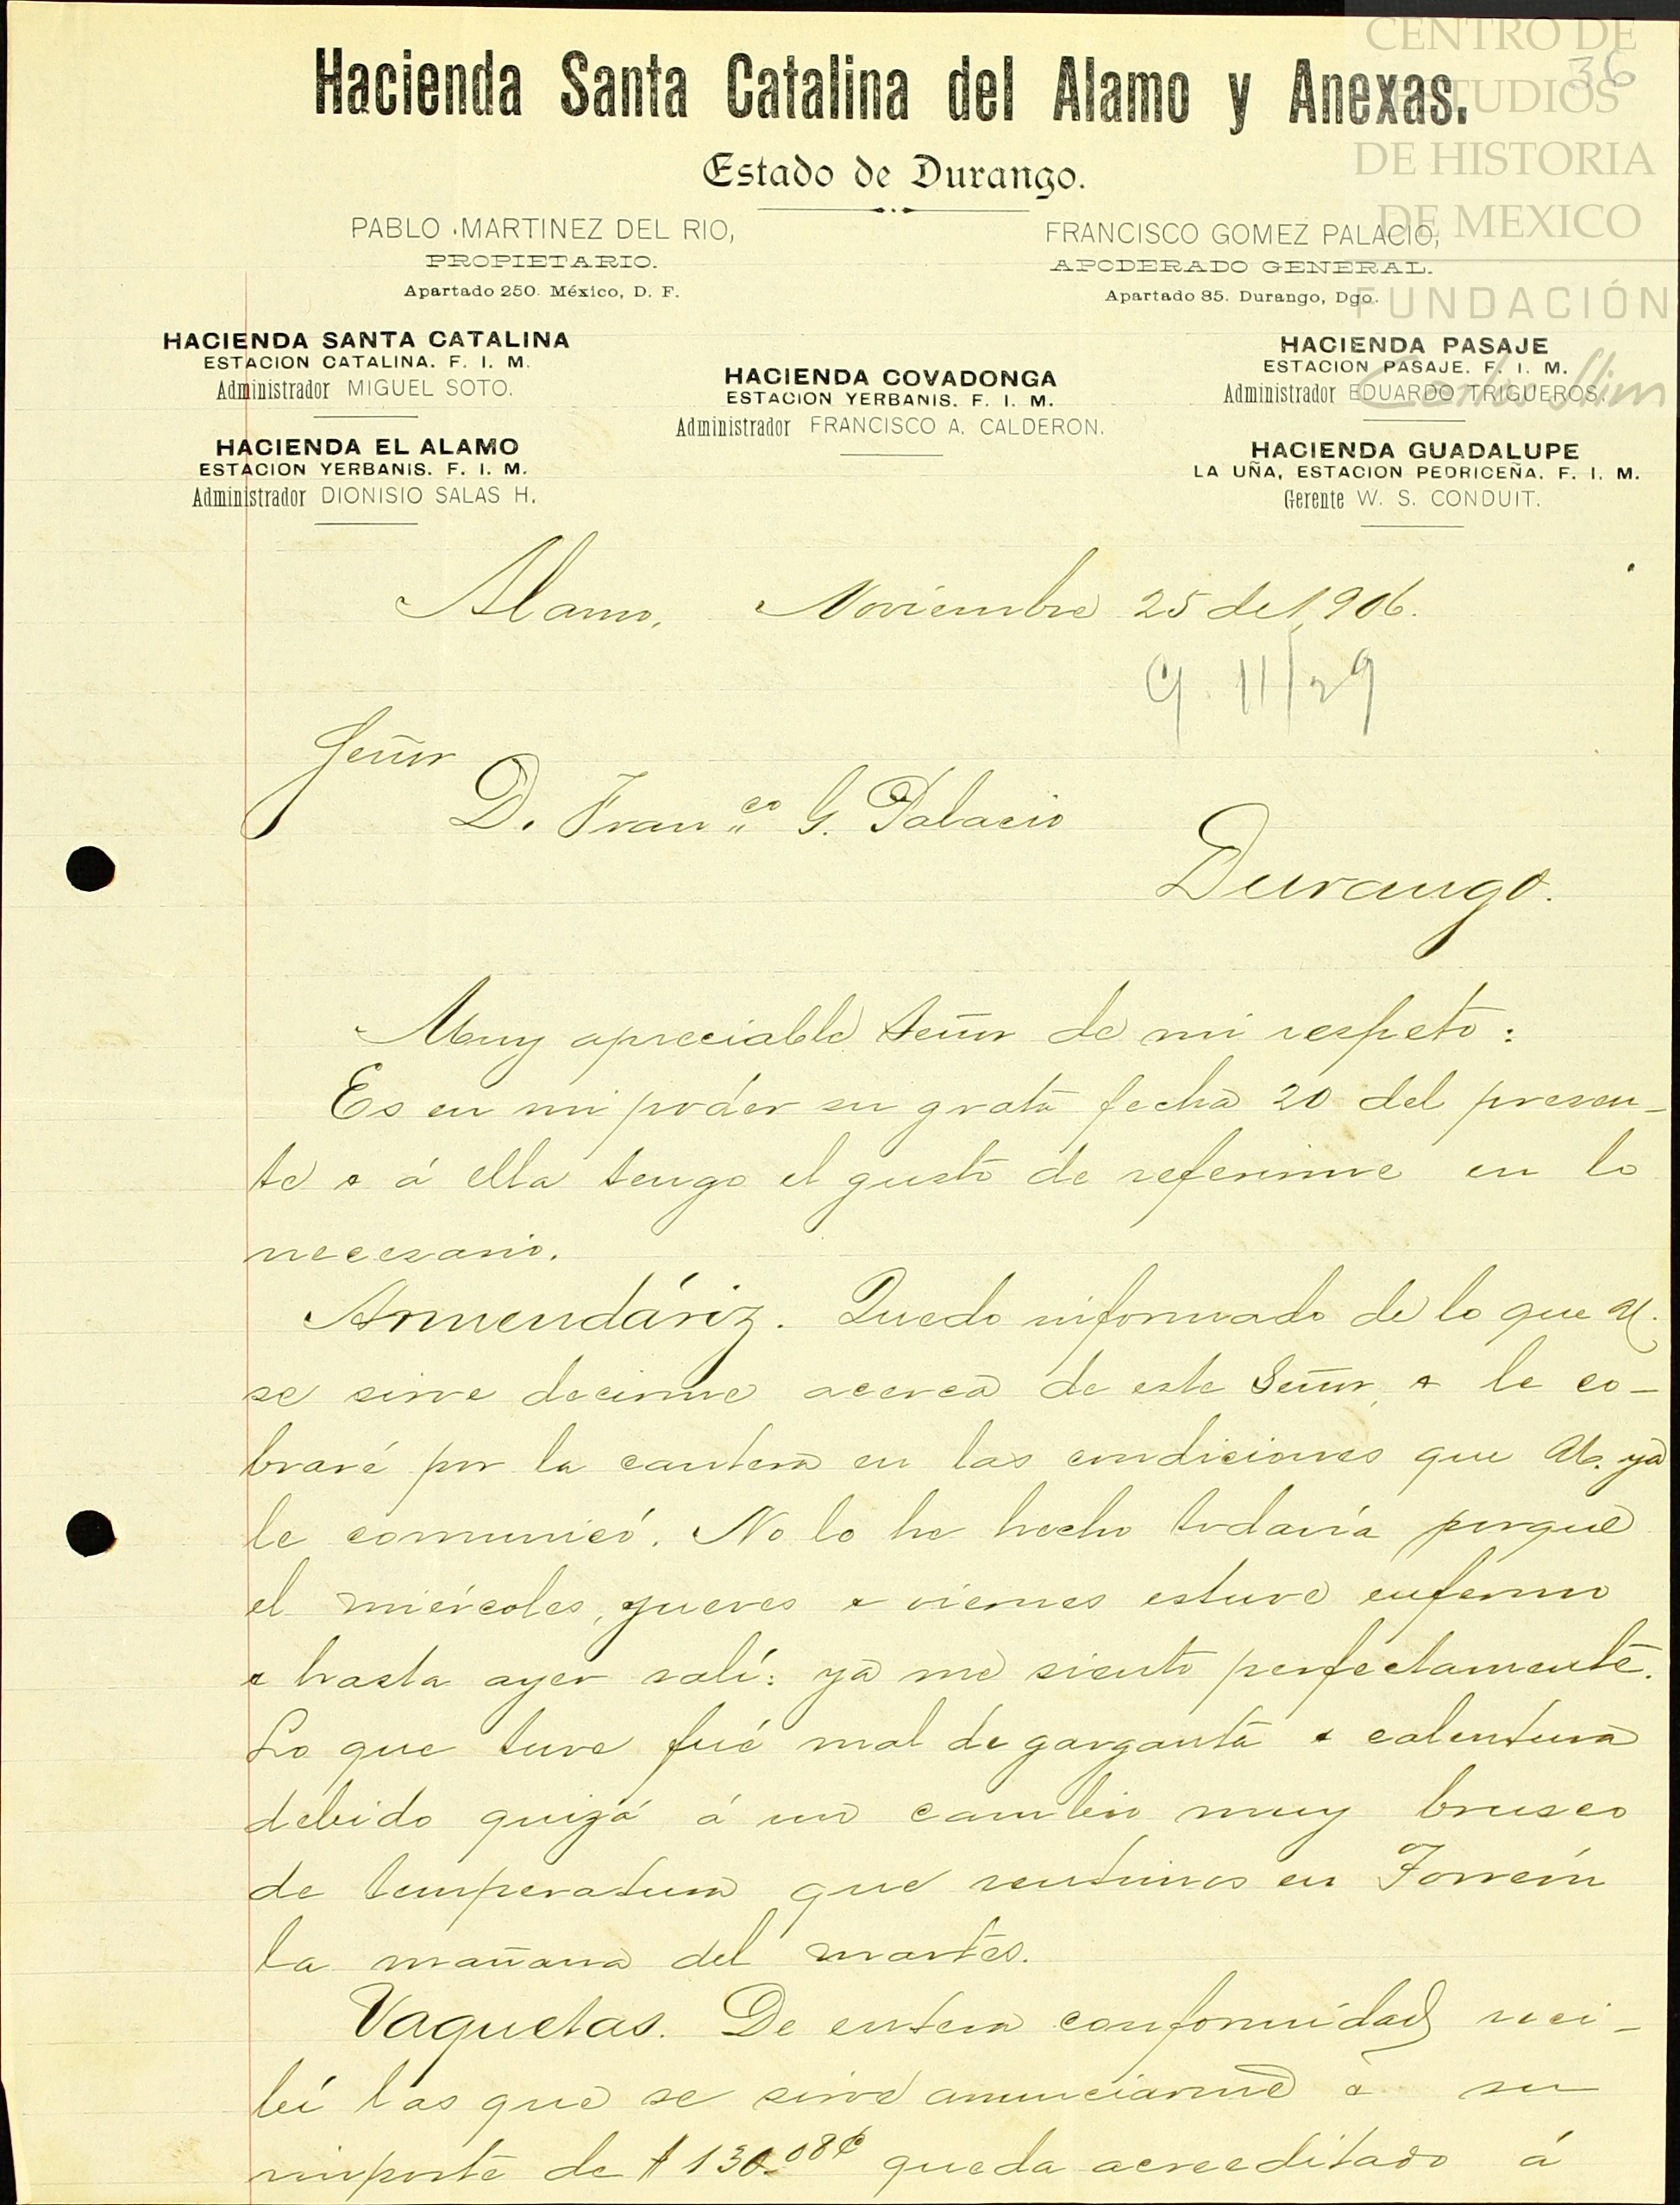 CENTRO DE
ESTUDIOS
DE HISTORIA
DE MEXICO
FUNDACIÓN
Carlos Slim
36
Hacienda Santa Catalina del Alamo y Anexas.
Estado de Durango.
PABLO MARTINEZ DEL RIO,
PROPIETARIO.
Apartado 250. México, D. F.
FRANCISCO GOMEZ PALACIO,
APODERADO GENERAL.
Apartado 85. Durango, Dgo.
HACIENDA SANTA CATALINA
ESTACION CATALINA. F. I. M.
Administrador MIGUEL SOTO.
HACIENDA EL ALAMO
ESTACION YERBANIS. F. I. M.
Administrador DIONISIO SALAS H.
HACIENDA COVADONGA
ESTACION YERBANIS. F. I. M.
Administrador FRANCISCO A. CALDERON.
HACIENDA PASAJE
ESTACION PASAJE. F. I. M.
Administrador EDUARDO TRIGUEROS.
HACIENDA GUADALUPE
LA UÑA, ESTACION PEDRICEÑA. F. I. M.
Gerente W. S. CONDUIT.
Alamo, Noviembre 25 de 1,906.
11/29
Señor
D. Franco G. Palacio
Durango.
Muy apreciable Señor de mi respeto:
Es en mi poder su grata fecha 20 del presen-
te y á ella tengo el gusto de referirme en lo
necesario.
Armendáriz. Quedo informado de lo que U.
se sirve decirme acerca de este Señor, y le co-
braré por la cantera en las condiciones que U. ya
le comunicó. No lo he hecho todavía porque
el miércoles, jueves y viernes estuve enfermo
y hasta ayer salí: ya me siento perfectamente.
Lo que tuve fué mal de garganta y calentura
debido quizá á un cambio muy brusco
de temperatura que sentimos en Torreón
la mañana del martes.
Vaquetas. De entera conformidad reci-
bí las que se sirve anunciarme y su
importe de $130.08¢ queda acreditado á